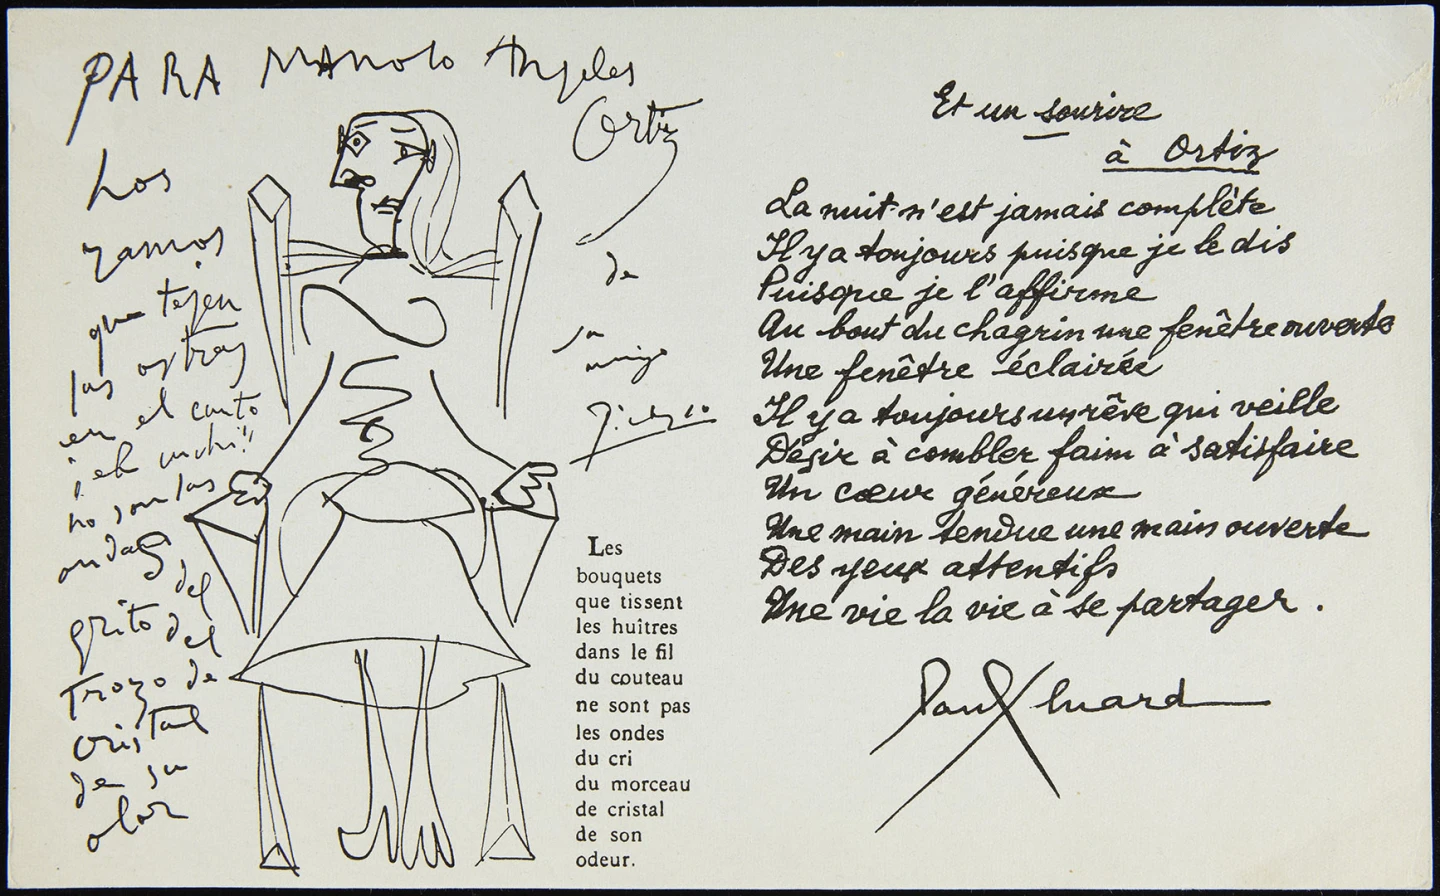 PARA MANOLO Angeles
Ortiz
de
su
amigo
Picasso
Los
ramos
que tejen
las ostras
en el canto
del
no son las
ondas
del
grito del
trozo de
cristal
de su
olor
Les
bouquets
que tissent
les huîtres
dans le fil
du couteau
ne sont pas
les ondes
du cri
du morceau
de cristal
de son
odeur.
Et un sourire
à Ortiz
La nuit n'est jamais complète
Il y a toujours puisque je le dis
Puisque je l'affirme
Au bout du chagrin une fenêtre ouverte
Une fenêtre éclairée
Il y a toujours un rêve qui veille
Désir à combler faim à satisfaire
Un cœur généreux
Une main tendue une main ouverte
Des yeux attentifs
Une vie la vie à se partager.
Paul Eluard